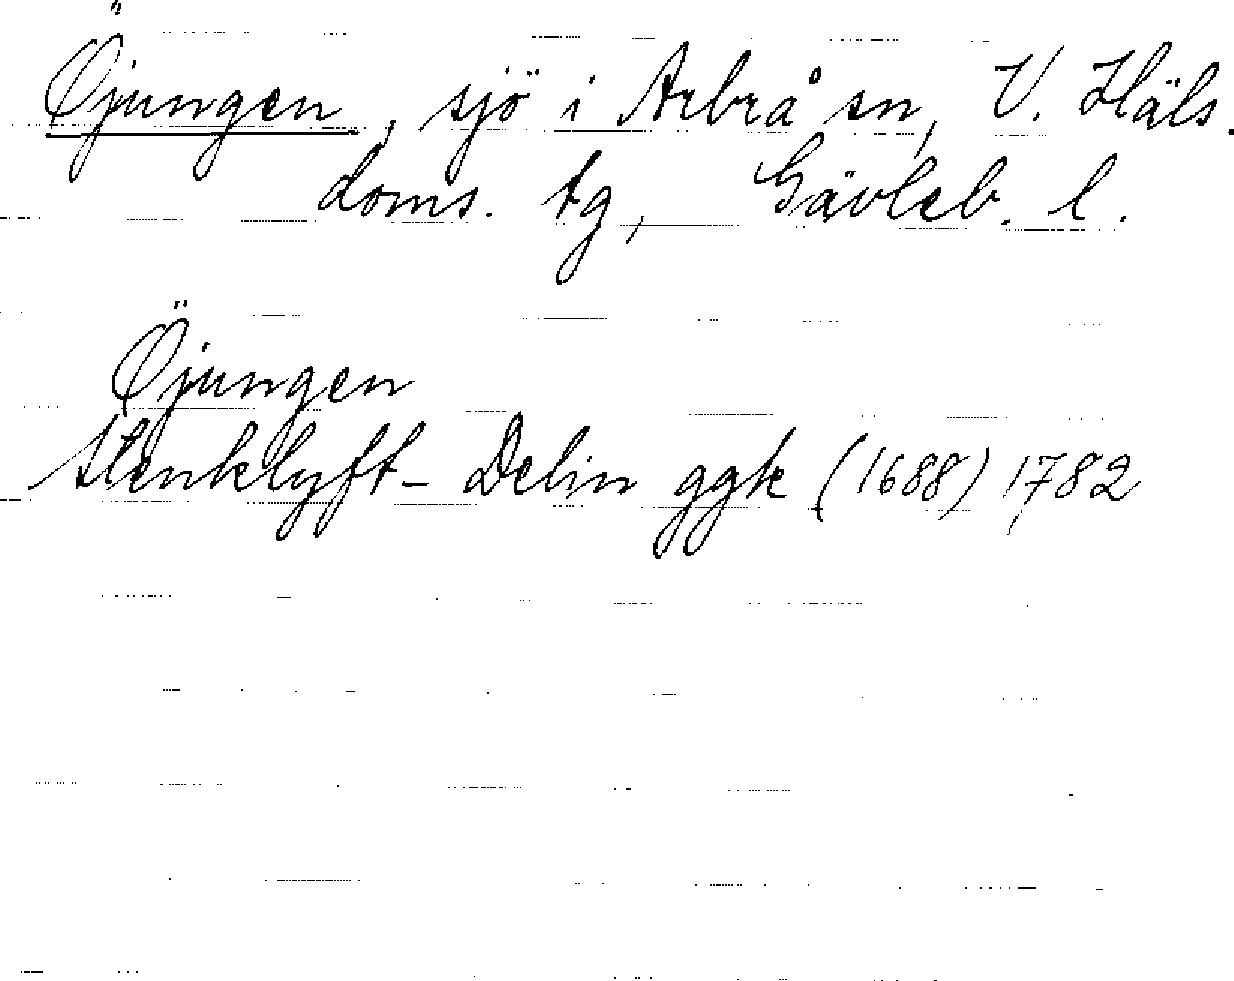 Öjungen, sjö i Arbrå sn, V. Häls.
doms. tg, Gävleb. l.
Öjungen
Stenklyft - Delin ggk (1688) 1782